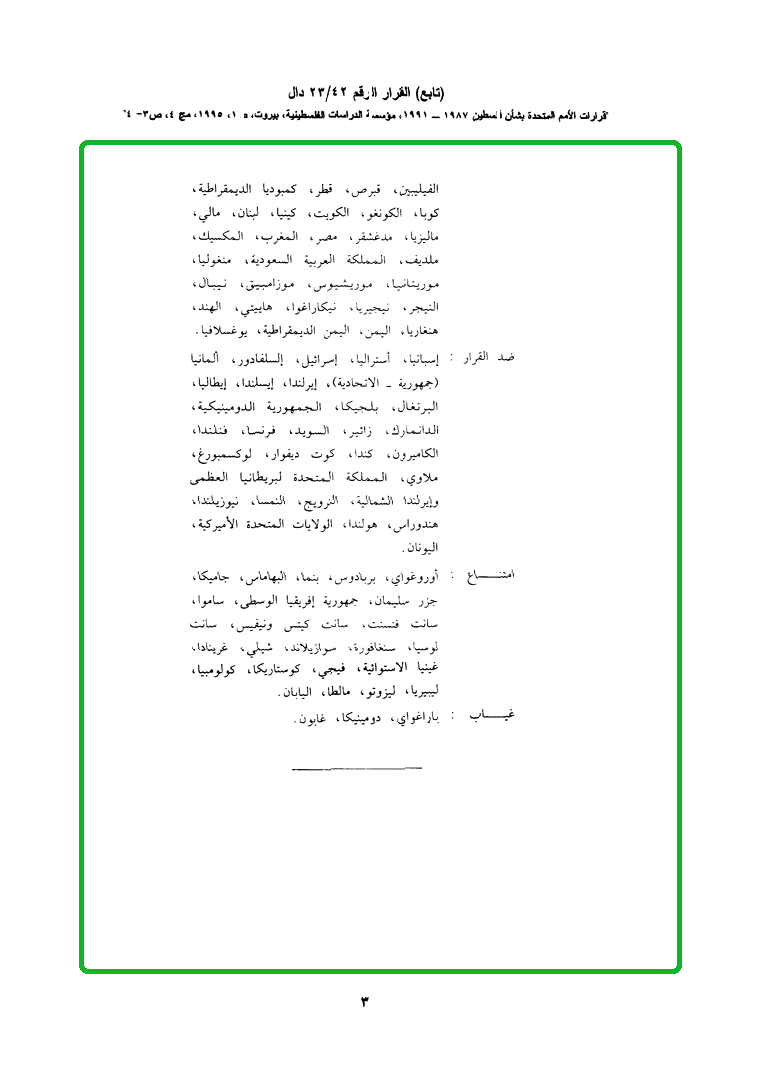 (تابع) القرار الرقم ٢٣/٤٢ دال
"قرارات الأمم المتحدة بشأن فلسطين ١٩٨٧ – ١٩٩١، مؤسسة الدراسات الفلسطينية، بيروت، ط ١، ١٩٩٥، مج ٤، ص٣- ٤"
الفيليبين، قبرص، قطر، كمبوديا الديمقراطية،
كوبا، الكونغو، الكويت، كينيا، لبنان، مالي،
ماليزيا، مدغشقر، مصر، المغرب، المكسيك،
ملديف، المملكة العربية السعودية، منغوليا،
موريتانيا، موريشيوس، موزامبيق، نيبال،
النيجر، نيجيريا، نيكاراغوا، هاييتي، الهند،
هنغاريا، اليمن، اليمن الديمقراطية، يوغسلافيا.
ضد القرار : إسبانيا، أستراليا، إسرائيل، إلسلفادور، ألمانيا
(جمهورية ـ الاتحادية)، إيرلندا، إيسلندا، إيطاليا،
البرتغال، بلجيكا، الجمهورية الدومينيكية،
الدانمارك، زائير، السويد، فرنسا، فنلندا،
الكاميرون، كندا، كوت ديفوار، لوكسمبورغ،
ملاوي، المملكة المتحدة لبريطانيا العظمى
وإيرلندا الشمالية، النرويج، النمسا، نيوزيلندا،
هندوراس، هولندا، الولايات المتحدة الأميركية،
اليونان.
امتنـــاع : أوروغواي، بربادوس، بنما، البهاماس، جاميكا،
جزر سليمان، جمهورية إفريقيا الوسطى، ساموا،
سانت فنسنت، سانت كيتس ونيفيس، سانت
لوسيا، سنغافورة، سوازيلاند، شيلي، غرينادا،
غينيا الاستوائية، فيجي، كوستاريكا، كولومبيا،
ليبيريا، ليزوتو، مالطا، اليابان.
غيـــاب : باراغواي، دومينيكا، غابون.
٣